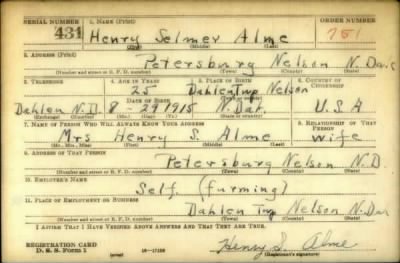 SERIAL NUMBER 1. NAME (Print) ORDER NUMBER
431 Henry Selmer Alme 751
(First) (Middle) (Last)
2. ADDRESS (Print)
Petersburg Nelson N. Dak
(Number and street or R. F. D. number) (Town) (County) (State)
3. TELEPHONE 4. AGE IN YEARS 5. PLACE OF BIRTH 6. COUNTRY OF CITIZENSHIP
25 Dahlen Twp Nelson
DATE OF BIRTH (Town or county)
Dahlen N.D. 8-29-1915 N. Dar. U.S.A
(Exchange) (Number) (Mo.) (Day) (Yr.) (State or country)
7. NAME OF PERSON WHO WILL ALWAYS KNOW YOUR ADDRESS 8. RELATIONSHIP OF THAT PERSON
Mrs Henry S. Alme wife
(Mr., Mrs., Miss) (First) (Middle) (Last)
9. ADDRESS OF THAT PERSON
Petersburg Nelson N.D.
(Number and street or R. F. D. number) (Town) (County) (State)
10. EMPLOYER'S NAME
Self. (furming)
11. PLACE OF EMPLOYMENT OR BUSINESS
Dahlen Twp Nelson N. Dar
(Number and street or R. F. D. number) (Town) (County) (State)
I AFFIRM THAT I HAVE VERIFIED ABOVE ANSWERS AND THAT THEY ARE TRUE.
REGISTRATION CARD
D. S. S. Form 1 16—17105 Henry S. Alme
(Registrant's signature)